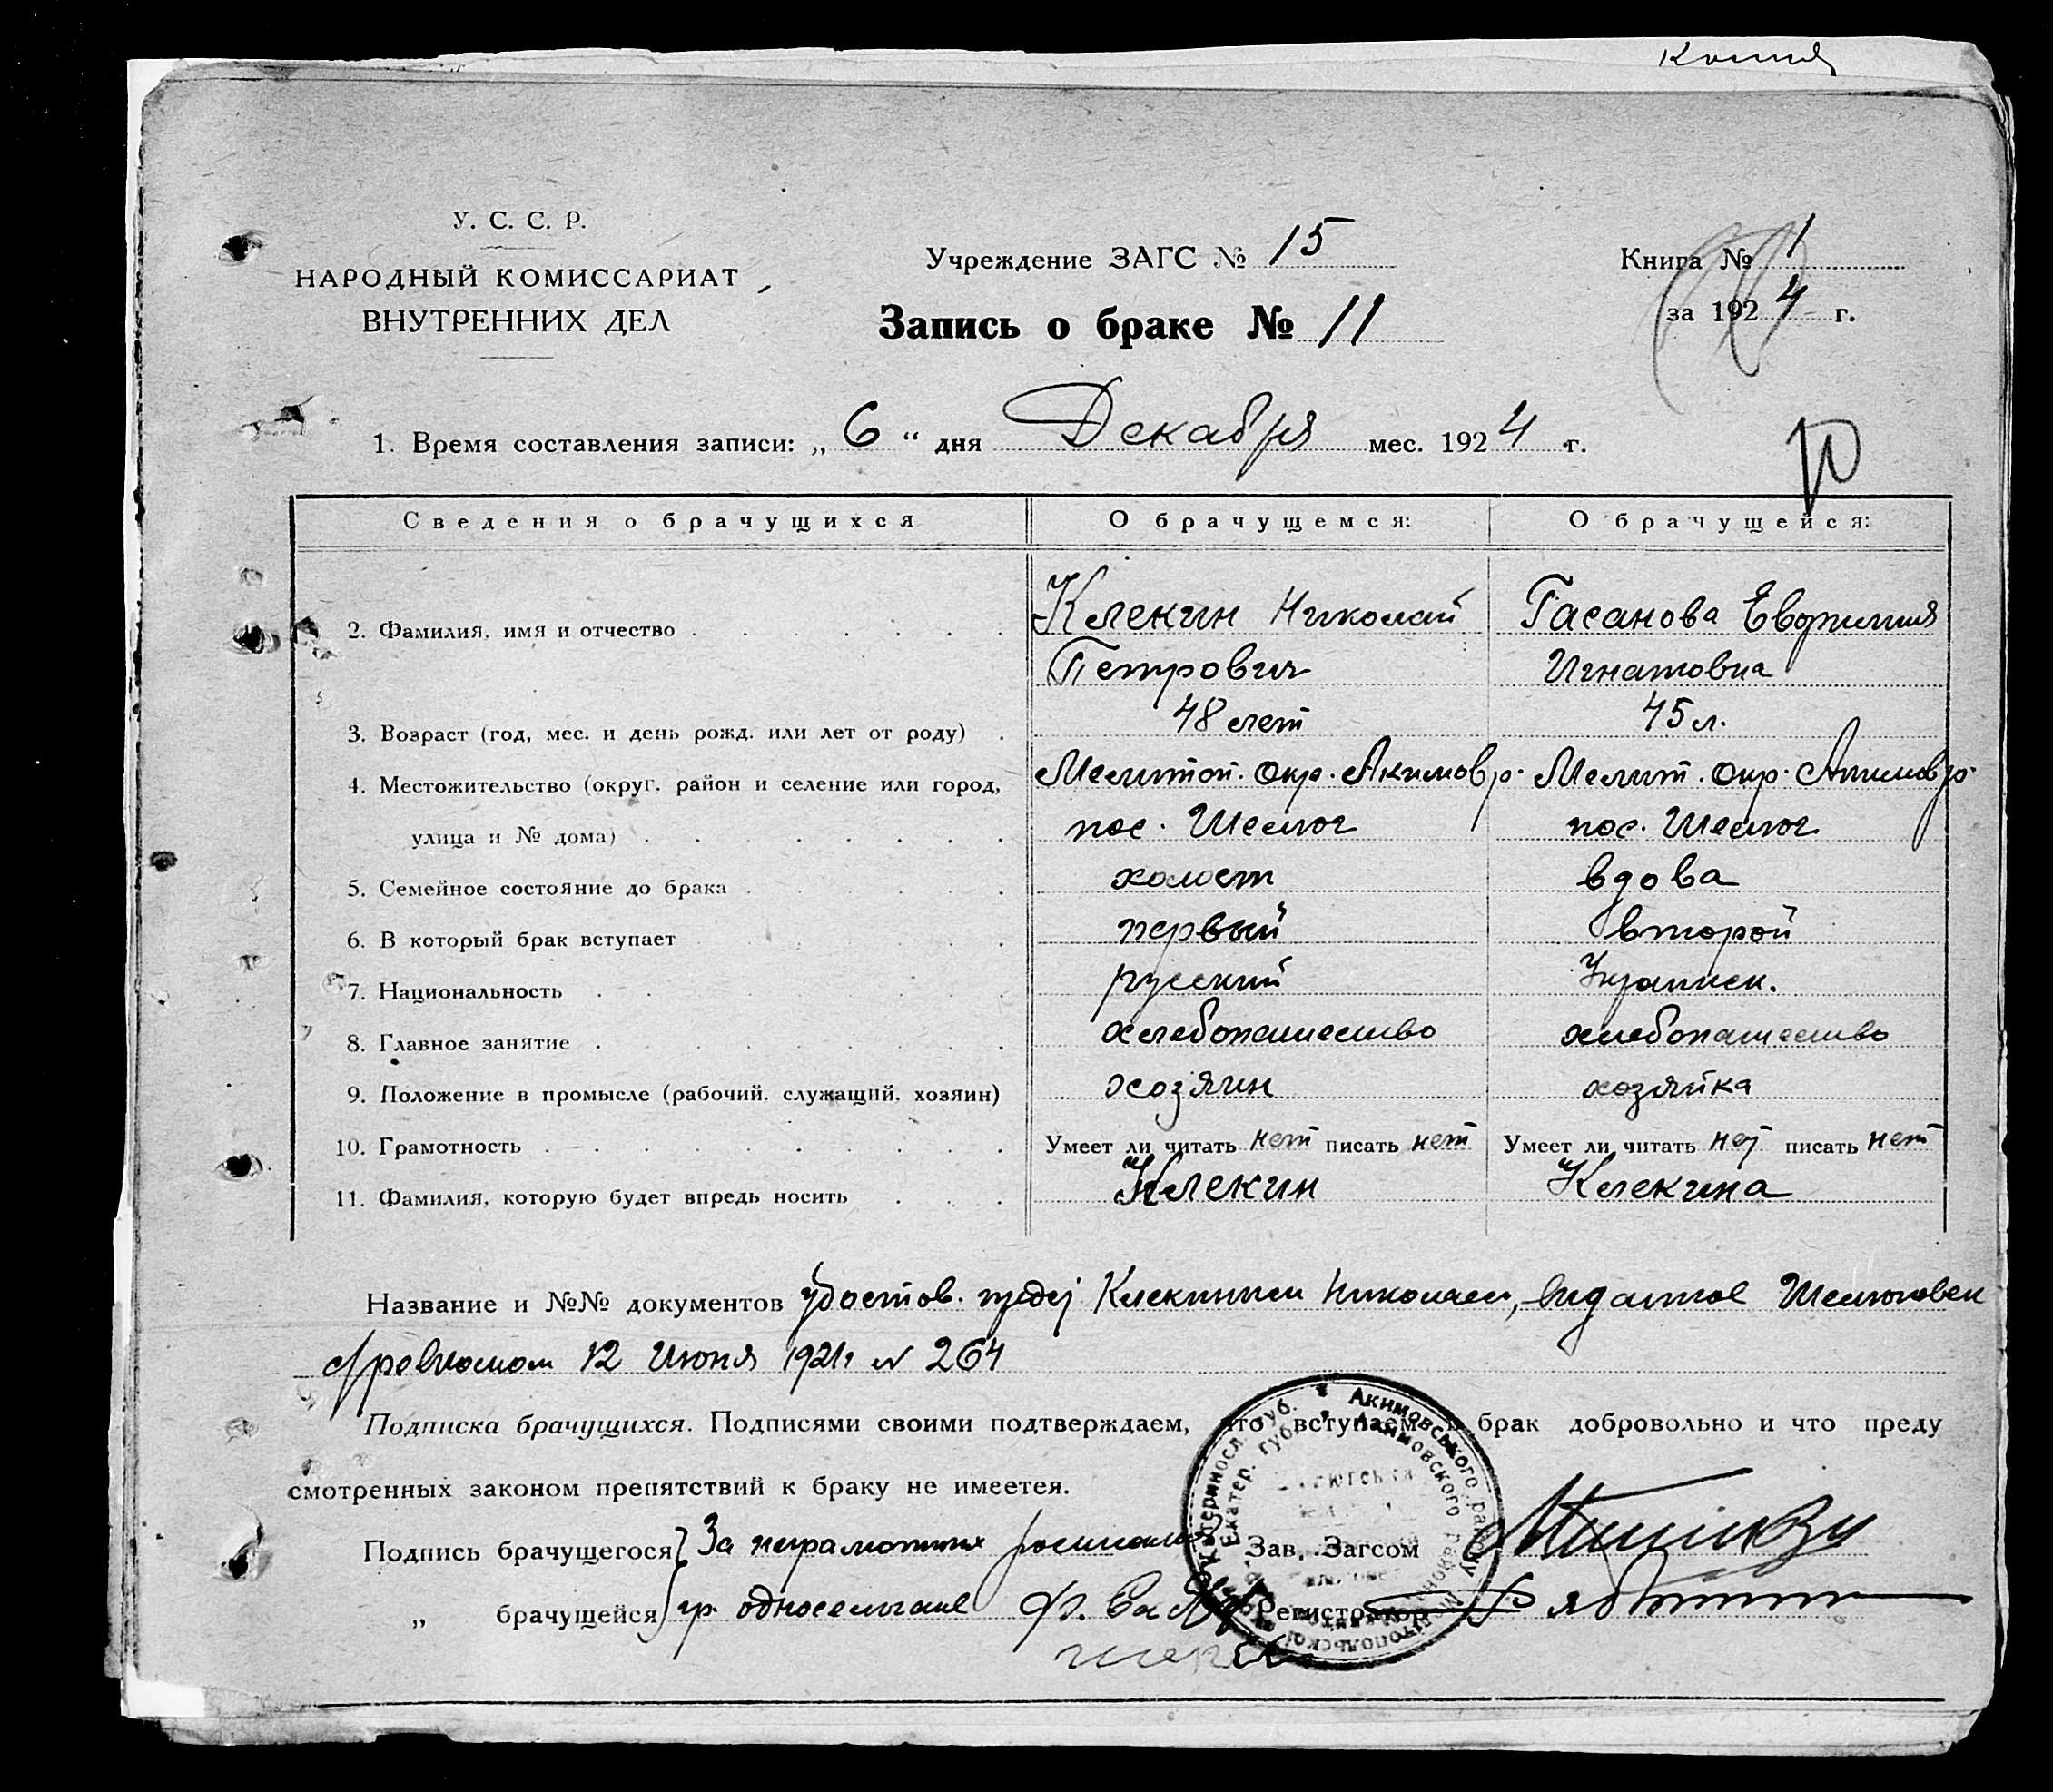 Копия
У. С. С. Р.
НАРОДНЫЙ КОМИССАРИАТ
ВНУТРЕННИХ ДЕЛ
Учреждение ЗАГС № 15
Запись о браке № 11
Книга № 1
за 1924 г.
1. Время составления записи: „ 6 “ дня Декабря мес. 1924 г.
10
Сведения о брачущихся О брачущемся: О брачущейся:
2. Фамилия, имя и отчество Клекин Николай Гасанова Евфимия
Петрович Игнатовна
3. Возраст (год, мес. и день рожд. или лет от роду) 48 лет 45 л.
4. Местожительство (округ, район и селение или город, Мелитоп. окр. Акимов р. Мелит. окр. Акимов р.
улица и № дома) пос. Шелюг пос. Шелюг
5. Семейное состояние до брака холост вдова
6. В который брак вступает первый второй
7. Национальность русский Украинск.
8. Главное занятие хлебопашество хлебопашество
9. Положение в промысле (рабочий, служащий, хозяин) хозяин хозяйка
10. Грамотность Умеет ли читать нет писать нет Умеет ли читать нет писать нет
11. Фамилия, которую будет впредь носить Клекин Клекина
Название и №№ документов удостов. Клекиным Николаем, выданное Шелюговск
с/ревкомом 12 июня 1921г № 264
Подписка брачущихся. Подписями своими подтверждаем, что вступаем в брак добровольно и что преду
смотренных законом препятствий к браку не имеетея.
Подпись брачущегося За неграмотных Зав. Загсом
„ брачущейся гр. односельчане Регистратор
Акимовського району
Катериносл. губ.
Екатер. губ. Акимовского района